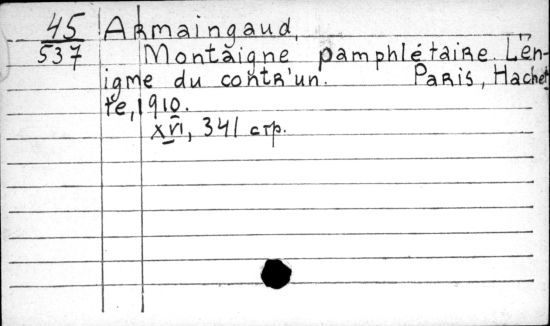 45 Armaingaud,
537 Montaigne pamphlétaire L'én-
igme du contr'un. Paris, Hachet
te, 1910.
XVI, 341 стр.